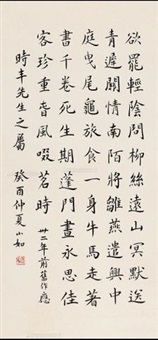 欲罷輕陰問柳絲遠山冥默送
青遲關情南陌將雛燕遣興中
庭曳尾龜旅食一身牛馬走著
書千卷死生期蓬門晝永思佳
客珍重風啜茗時 卅二年前舊作應
時丰先生之屬 癸酉仲夏小如